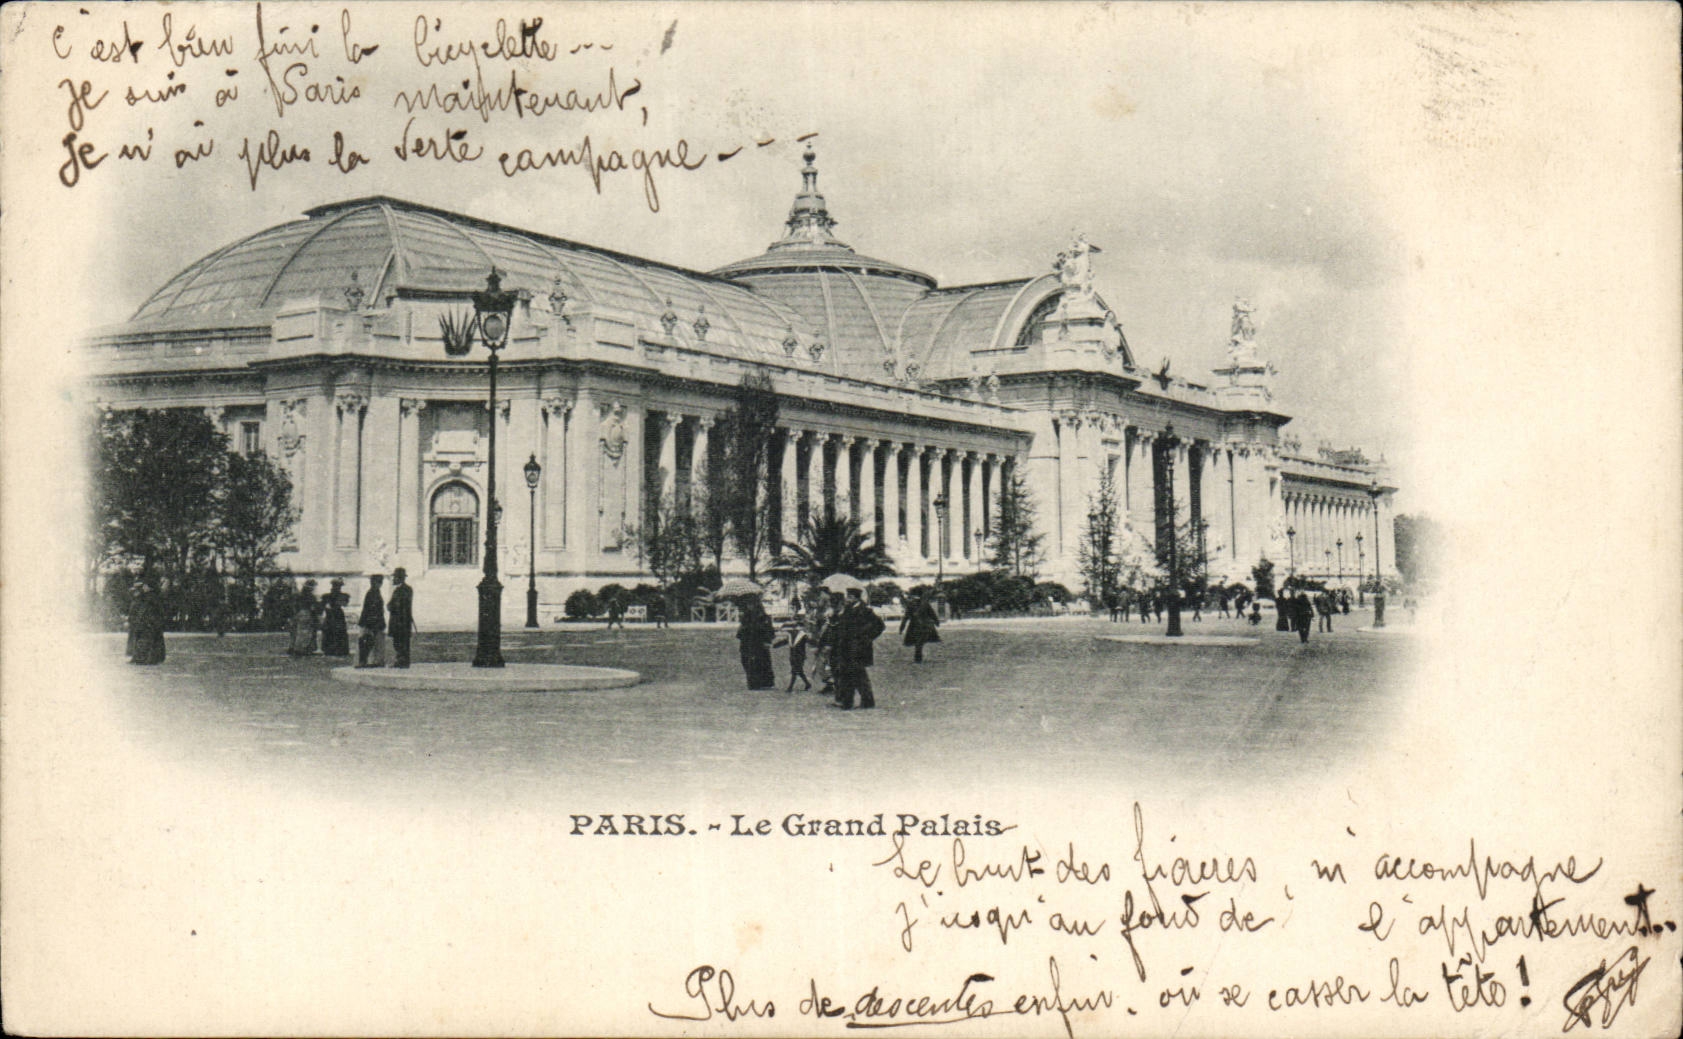 C'est bien fini la bicyclette...
Je suis à Paris maintenant,
Je n'ai plus la verte campagne...
PARIS. - Le Grand Palais
Le bruit des fiacres, m'accompagne
J'usqu'au fond de l'appartement...
Plus de descentes enfin. où se casser la tête!